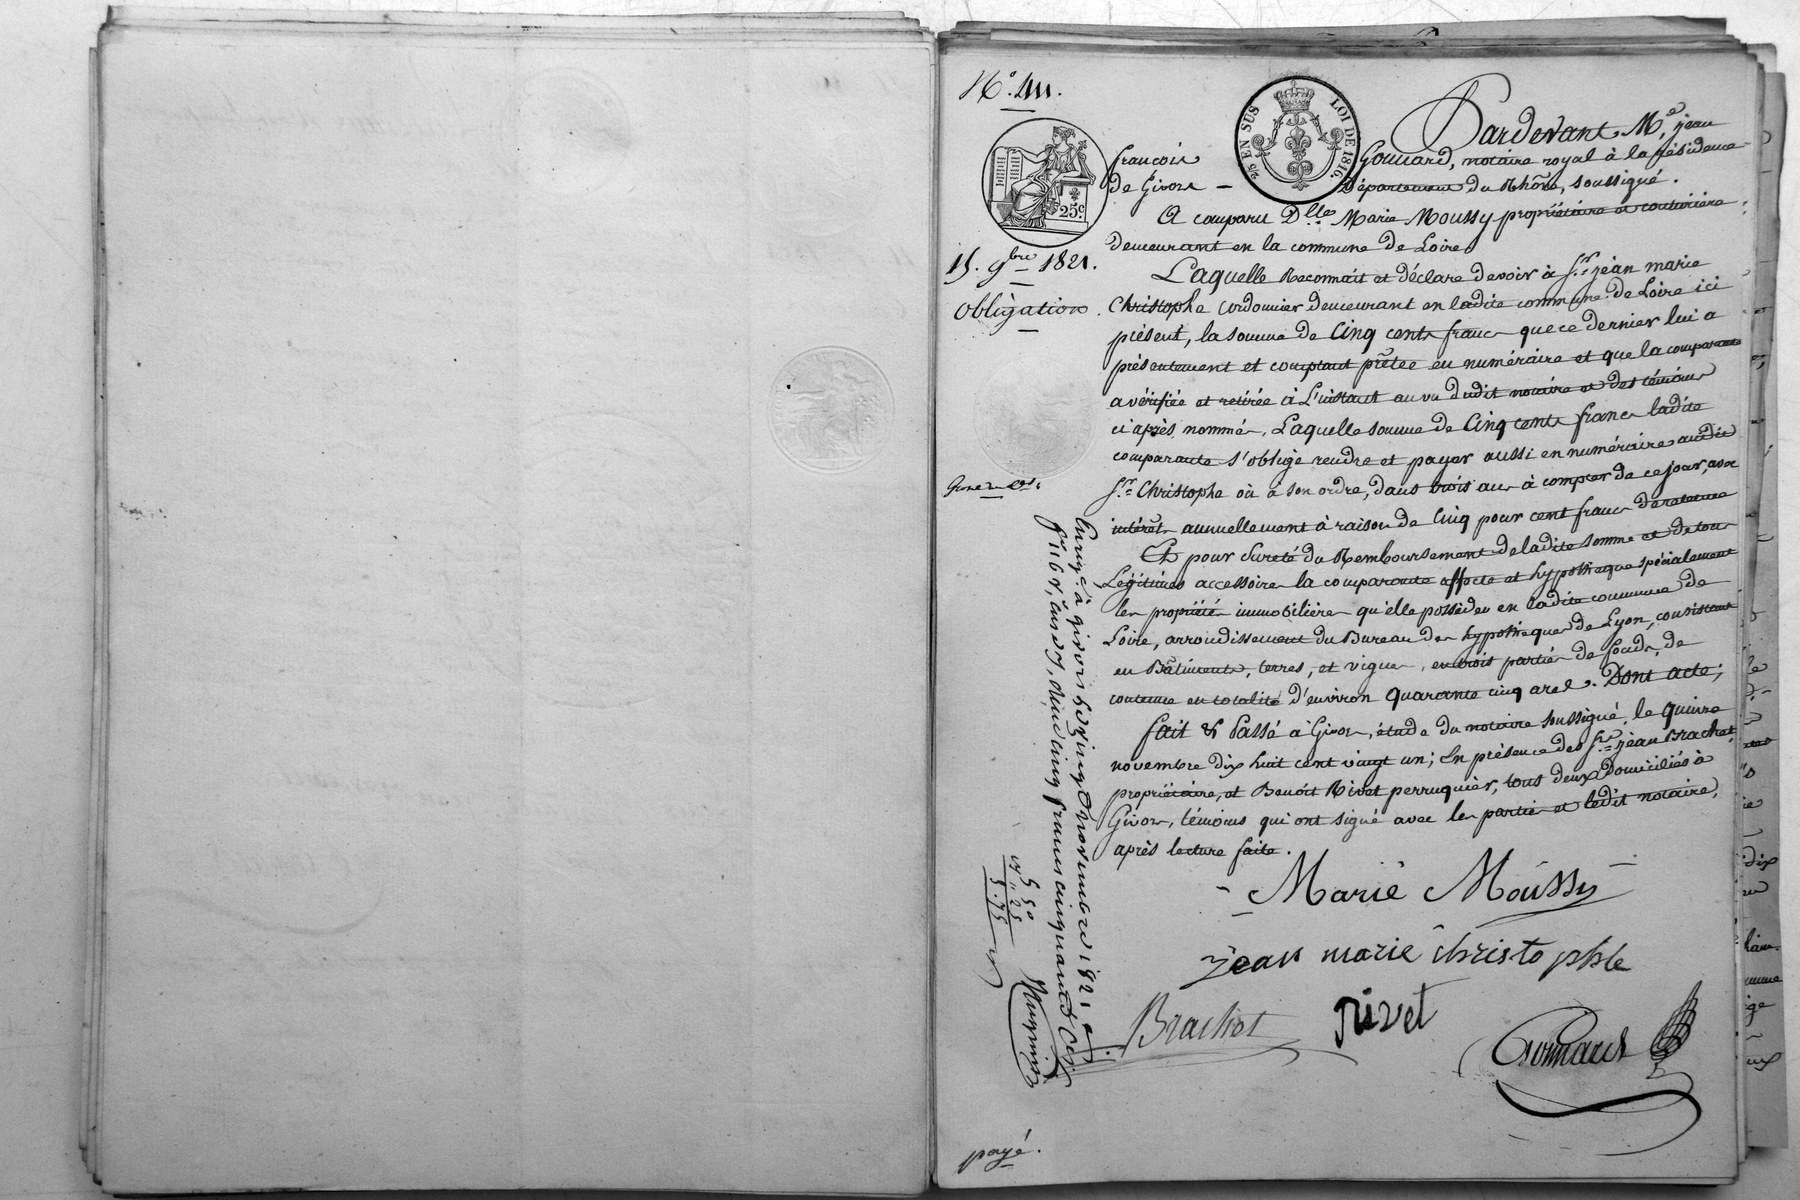 N.o 411.
2/5 EN SUS LOI DE 1816.
25c
Pardevant M.e jean
françois Gonnard, notaire royal à la résidence
de Givors - Département du Rhône, soussigné.
A comparu D.lle Marie Moussy propriétaire et couturière
demeurant en la commune de Loire,
15. 9bre 1821.
Laquelle Reconnait et déclare devoir à S.r jean marie
Obligation.
Christophe Cordonnier demeurant en ladite commune de Loire ici
présent, la somme de Cinq cents francs que ce dernier lui a
présentement et comptant prêtée en numéraire et que la comparante
a vérifiée et retirée à L'instant au vu dudit notaire et des témoins
ci après nommés, Laquelle somme de Cinq cents francs ladite
comparante s'oblige rendre et payer aussi en numéraire audit
S.r Christophe où à son ordre, dans trois ans à compter de ce jour, avec
intérêts annuellement à raison de Cinq pour cent francs de retenue
Et pour Sureté du Remboursement de ladite somme et de tous
Légitimes accessoires la comparante affecte et hypotheque spécialement
les propriétés immobilières qu'elle possède en ladite commune de
Loire, arrondissement du Bureau des hypotheques de Lyon, consistant
en Bâtiments, terres, et vignes, en trois parties de fonds, de
contenue en totalité d'environ quarante cinq ares. Dont acte;
fait & Passé à Givors, étude du notaire soussigné, le quinze
novembre dix huit cent vingt un; En présence des S.rs jean Brachet
propriétaire, et Benoit Rivet perruquier, tous deux domiciliés à
Givors, témoins qui ont signé avec les parties et ledit notaire,
après lecture faite.
Enreg.é à givors le vingt novembre 1821
f.o 116 v.o, Cases, deux cinq francs cinquante C.es
5 50
" 25
5.75
Marie Moussy
jean marie christophle
Brachet
rivet
Gonnard
payé.